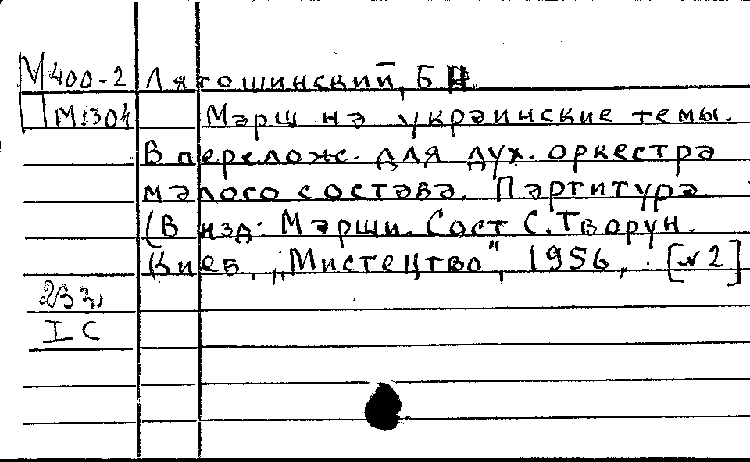 М400-2 Лятошинский, Б Н.
М1304 Марш на украинские темы.
В перелож. для дух. оркестра
малого состава. Партитура
(В изд: Марши. Сост С. Творун.
Киев, „Мистецтво", 1956, . [№2]
233,
I C